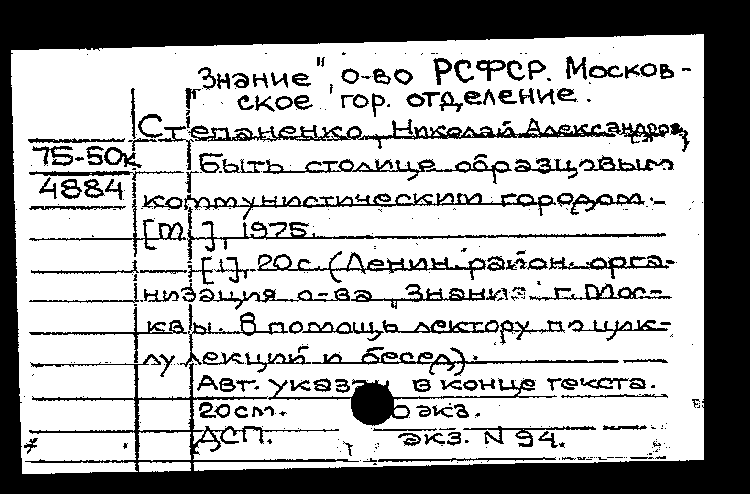 "Знание" о-во РСФСР. Москов-
ское гор. отделение.
Степаненко, Николай Александров.
75-50к Быть столице образцовым
4884 коммунистическим городом.-
[М.], 1975.
[1], 20с. (Ленин. район. орга-
низация о-ва "Знание" г. Мос-
квы. В помощь лектору по цик-
лу лекций и бесед).
Авт. указан в конце текста.
20см. экз.
ДСП. экз. N 94.